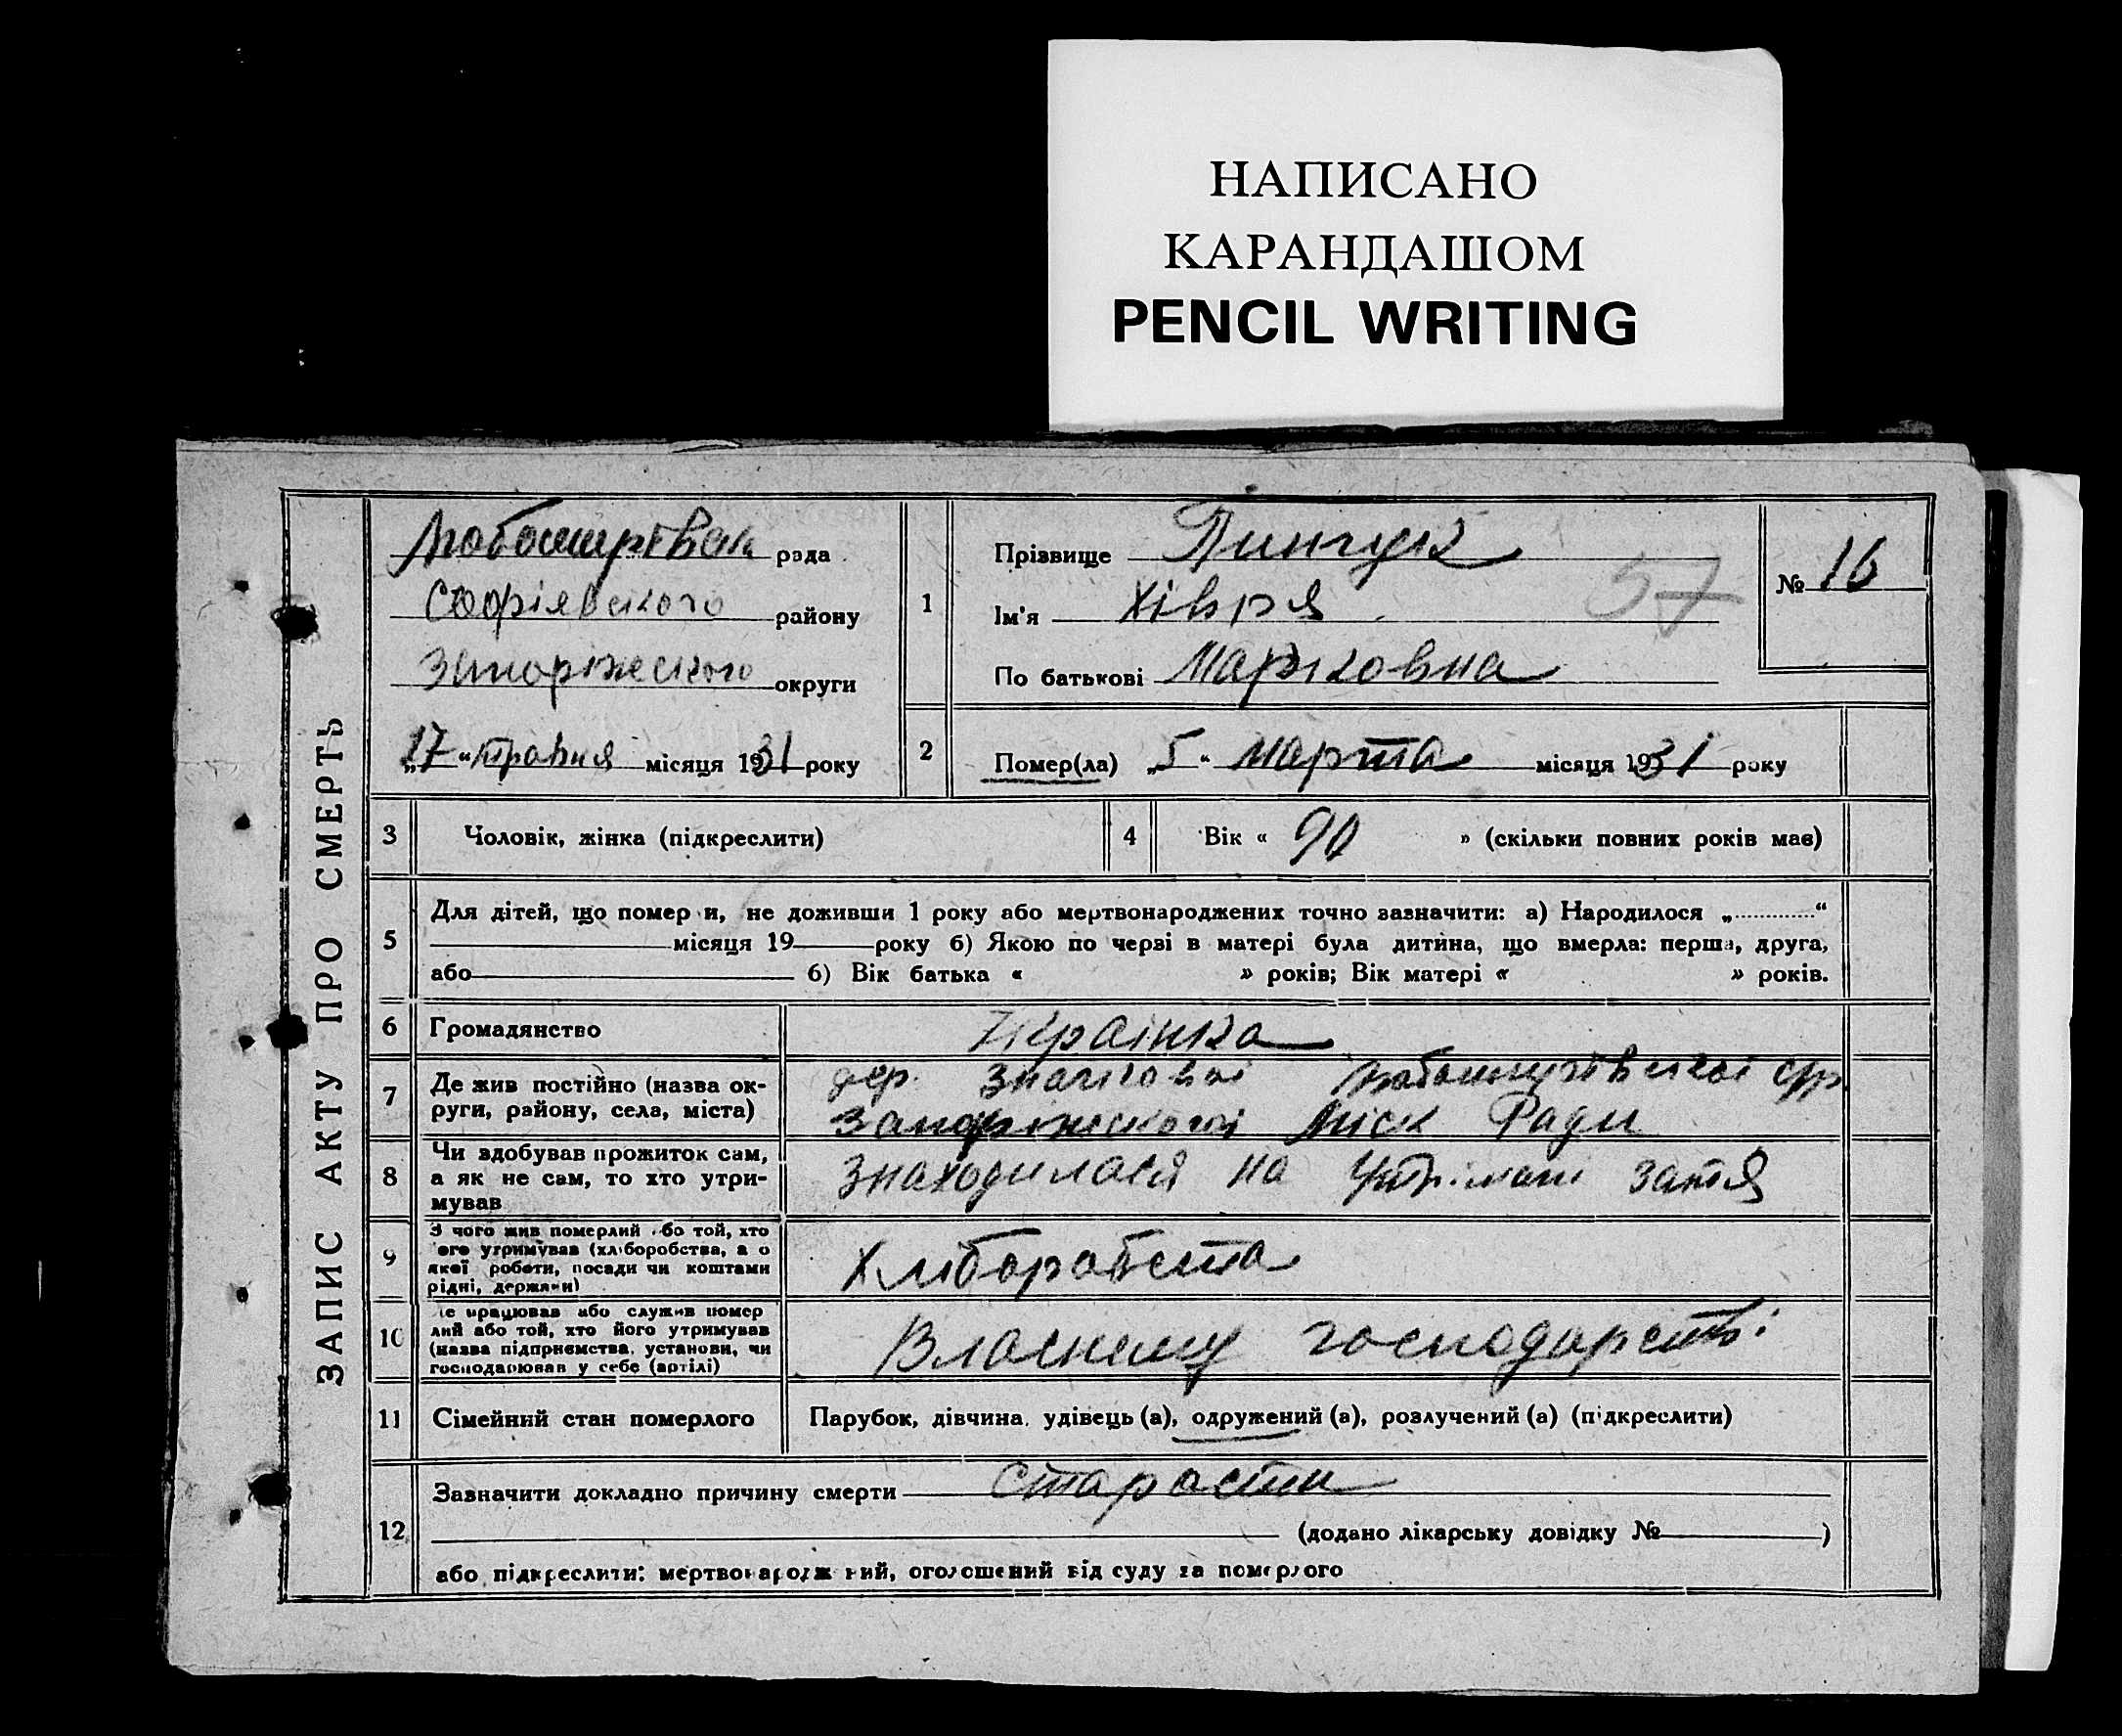 НАПИСАНО
КАРАНДАШОМ
PENCIL WRITING
ЗАПИС АКТУ ПРО СМЕРТЬ
рада
Софіевського району
округи
„17“ травня місяця 1931 року
1
Прізвище
Ім'я Хівря
По батькові Марковна
57
№ 16
2
Помер(ла) „5“ марта місяця 1931 року
3 Чоловік, жінка (підкреслити)
4 Вік « 90 » (скільки повних років має)
5
Для дітей, що померли, не доживши 1 року або мертвонароджених точно зазначити: а) Народилося „............“
місяця 19 року б) Якою по черзі в матері була дитина, що вмерла: перша, друга,
або б) Вік батька « » років; Вік матері « » років.
6 Громадянство Украінка
7
Де жив постійно (назва ок-
руги, района, села, міста)
Міск Ради
8
Чи здобував прожиток сам,
а як не сам, то хто утри-
мував
знаходилася на зятя
9
З чого жив померлий або той, хто
його утримував (хліборобства, з
якої роботи, посади чи коштами
рідні, держави)
Хліборобства
10
Де працював або служив помер
лий або той, хто його утримував
(назва підприємства, установи, чи
господарював у себе (артілі)
Власному господарстві
11 Сімейний стан померлого Парубок, дівчина, удівець (а), одружений (а), розлучений (а) (підкреслити)
12
Зазначити докладно причину смерти старости
(додано лікарську довідку № )
або підкреслити: мертвонароджений, оголошений від суду за померлого